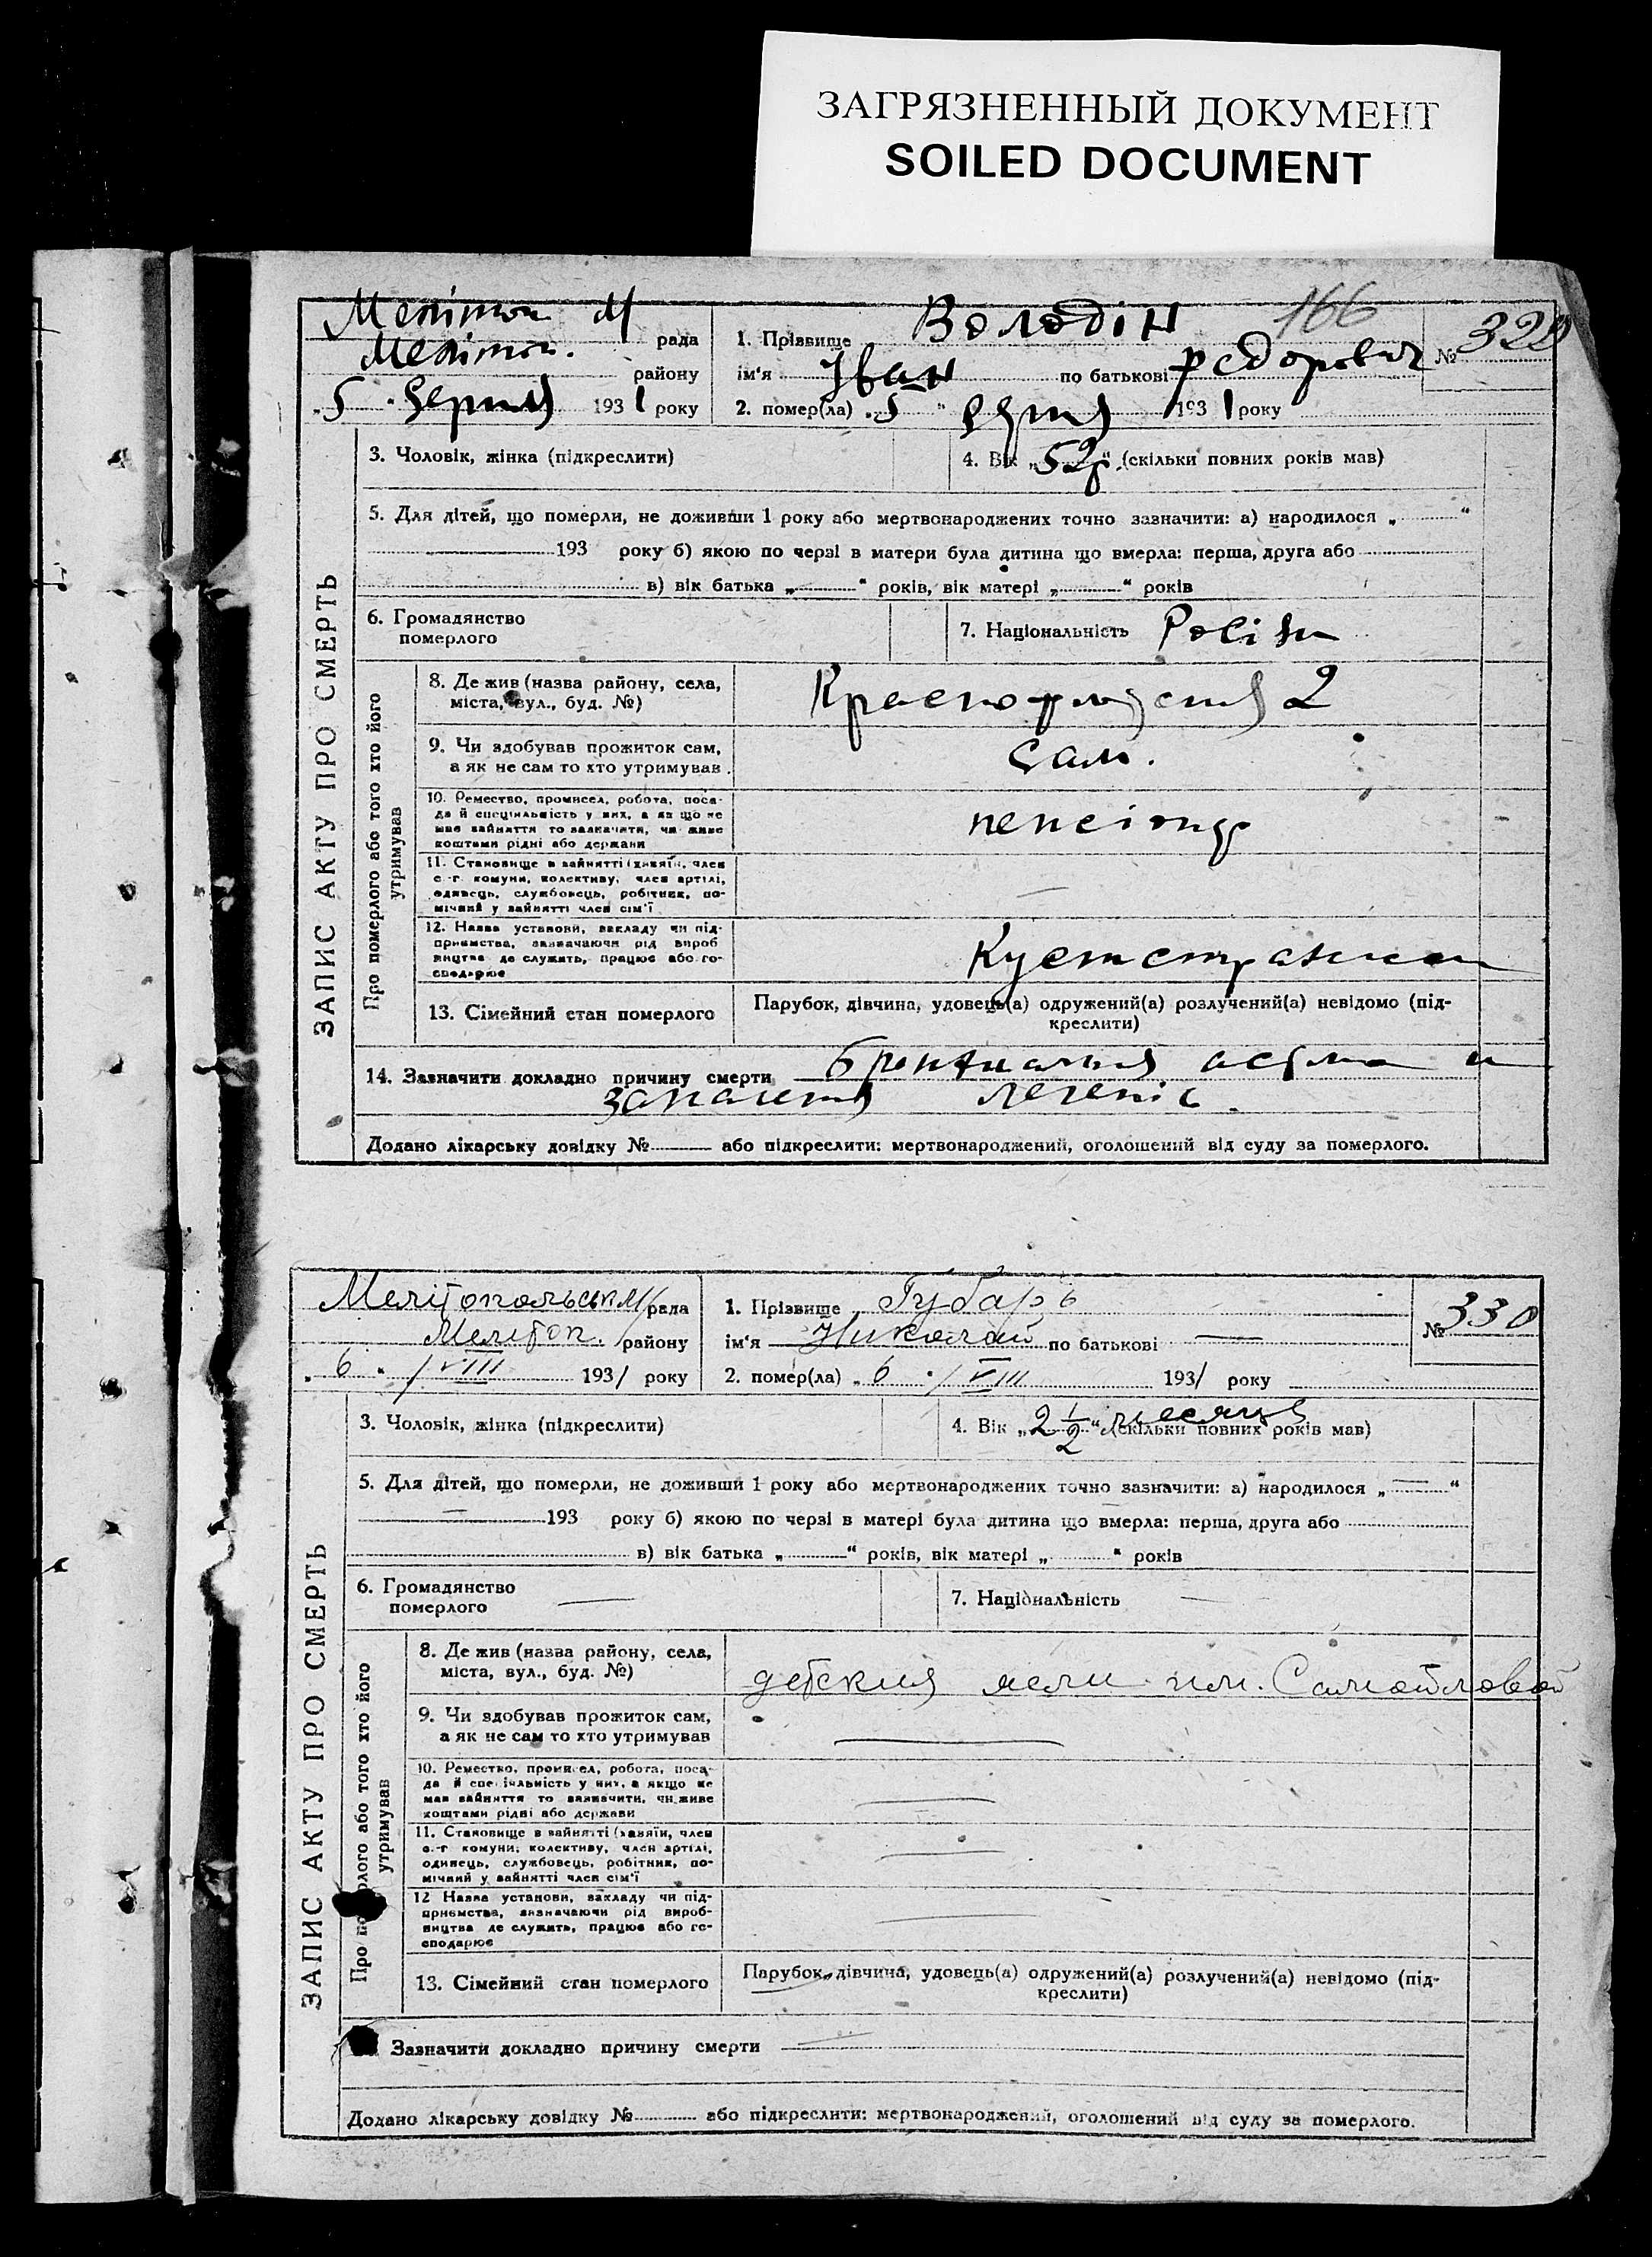 ЗАГРЯЗНЕННЫЙ ДОКУМЕНТ
SOILED DOCUMENT
166
Меліт М рада
Меліт. району
„5“ Серпня 1931 року
1. Прізвище Володін
ім'я Іван по батькові Федорович
2. помер(ла) „5“ серпня 1931 року
№ 329
ЗАПИС АКТУ ПРО СМЕРТЬ
3. Чоловік, жінка (підкреслити)
4. Вік „52р.“ (скільки повних років мав)
5. Для дітей, що померли, не доживши 1 року або мертвонароджених точно зазначити: а) народилося „ “
193 року б) якою по черзі в матери була дитина що вмерла: перша, друга або
в) вік батька „ “ років, вік матері „ “ років
6. Громадянство
померлого
7. Національність
Про померлого або того хто його
утримував
8. Де жив (назва району, села,
міста, вул., буд. №)
2
9. Чи здобував прожиток сам,
а як не сам то хто утримував
сам.
10. Ремество, промисел, робота, поса-
да й спеціяльність у них, а як що не
мав зайняття то зазначити, чи живе
коштами рідні або держави
пенсіонер
11. Становище в зайнятті (хазяїн, член
с.-г. комуни, колективу, член артілі,
одинець, службовець, робітник, по-
мічний у зайнятті член сім'ї
12. Назва установи, закладу чи під-
приємства, зазначаючи рід вироб
ництва де служить, працює або го-
сподарює
13. Сімейний стан померлого
Парубок, дівчина, удовець(а) одружений(а) розлучений(а) невідомо (під-
креслити)
14. Зазначити докладно причину смерти бронхиальна астма и
запалення легенів.
Додано лікарську довідку № або підкреслити: мертвонароджений, оголошений від суду за померлого.
Мелітопольськ М/рада
Меліtоп. району
„6“ /VIII 1931 року
1. Прізвище Губарь
ім'я Николай по батькові —
2. помер(ла) „6“ /VIII 1931 року
№ 330
ЗАПИС АКТУ ПРО СМЕРТЬ
3. Чоловік, жінка (підкреслити)
4. Вік „2 1/2“ месяца (скільки повних років мав)
5. Для дітей, що померли, не доживши 1 року або мертвонароджених точно зазначити: а) народилося „—“
— 193 року б) якою по черзі в матері була дитина що вмерла: перша, друга або
в) вік батька „ “ років, вік матері „ “ років
6. Громадянство
померлого —
7. Національність —
Про померлого або того хто його
утримував
8. Де жив (назва району, села,
міста, вул., буд. №)
детския ясли им. Самойловой
9. Чи здобував прожиток сам,
а як не сам то хто утримував
10. Ремество, промисел, робота, поса-
да й спеціяльність у них, а якщо не
мав зайняття то зазначити, чи живе
коштами рідні або держави
11. Становище в зайнятті (хазяїн, член
с.-г комуни, колективу, член артілі,
одинець, службовець, робітник, по-
мічний у зайнятті член сім'ї
12 Назва установи, закладу чи під-
приємства, зазначаючи рід вироб-
ництва де служить, працює або го-
сподарює
13. Сімейний стан померлого
Парубок, дівчина, удовець(а) одружений(а) розлучений(а) невідомо (під-
креслити)
Зазначити докладно причину смерти —
Додано лікарську довідку № або підкреслити: мертвонароджений, оголошений від суду за померлого.